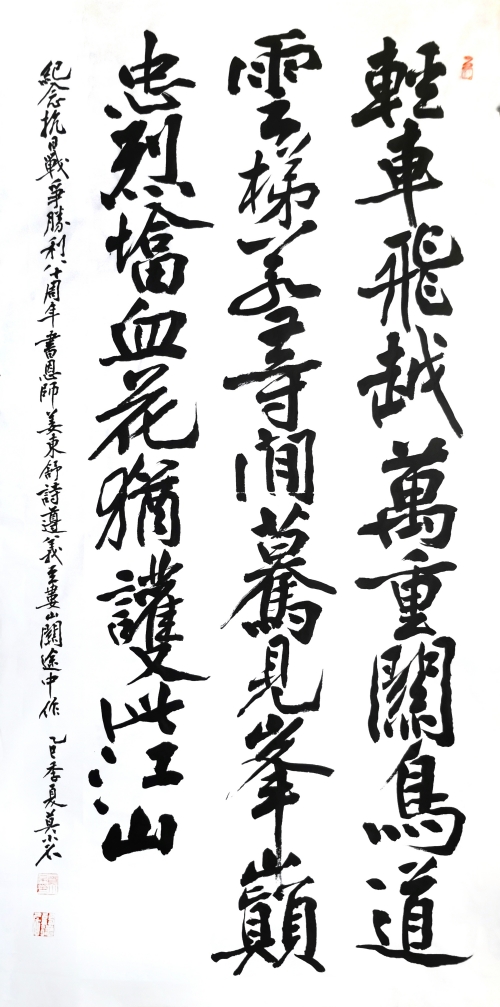 輕車飛越萬重關鳥道
雲梯若等閒驀見峯巔
忠烈塔血花猶護此江山
紀念抗日戰爭勝利八十周年書恩師姜東舒詩遵義至婁山關途中作 乙巳季夏莫小不